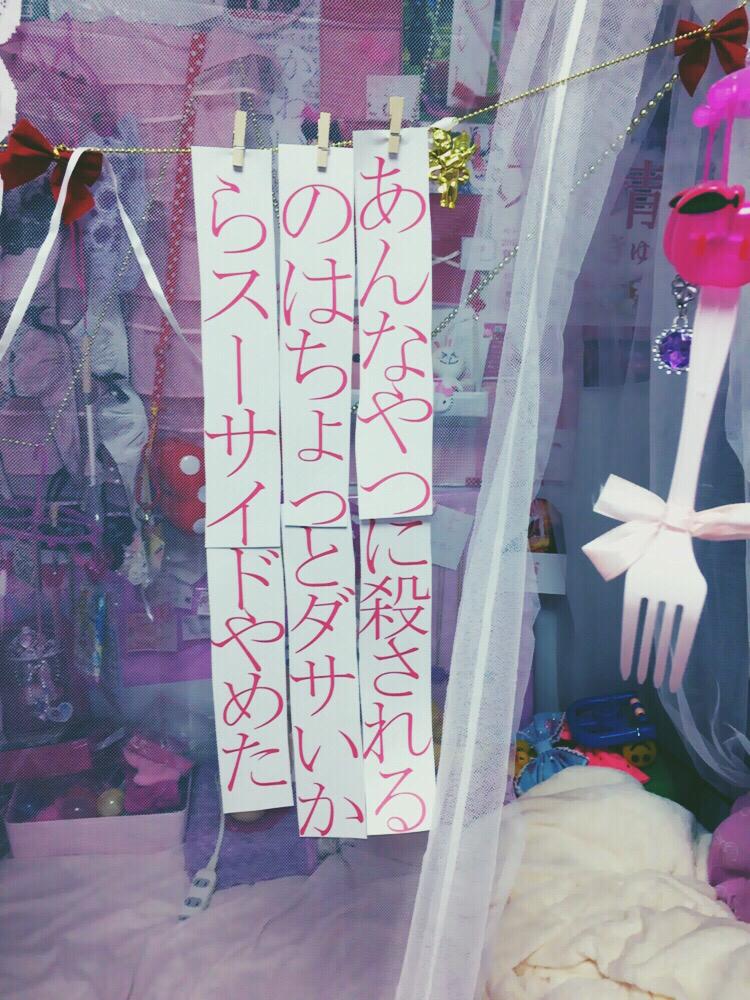 あんなやつに殺される
のはちょっとダサいか
らスーサイドやめた
青